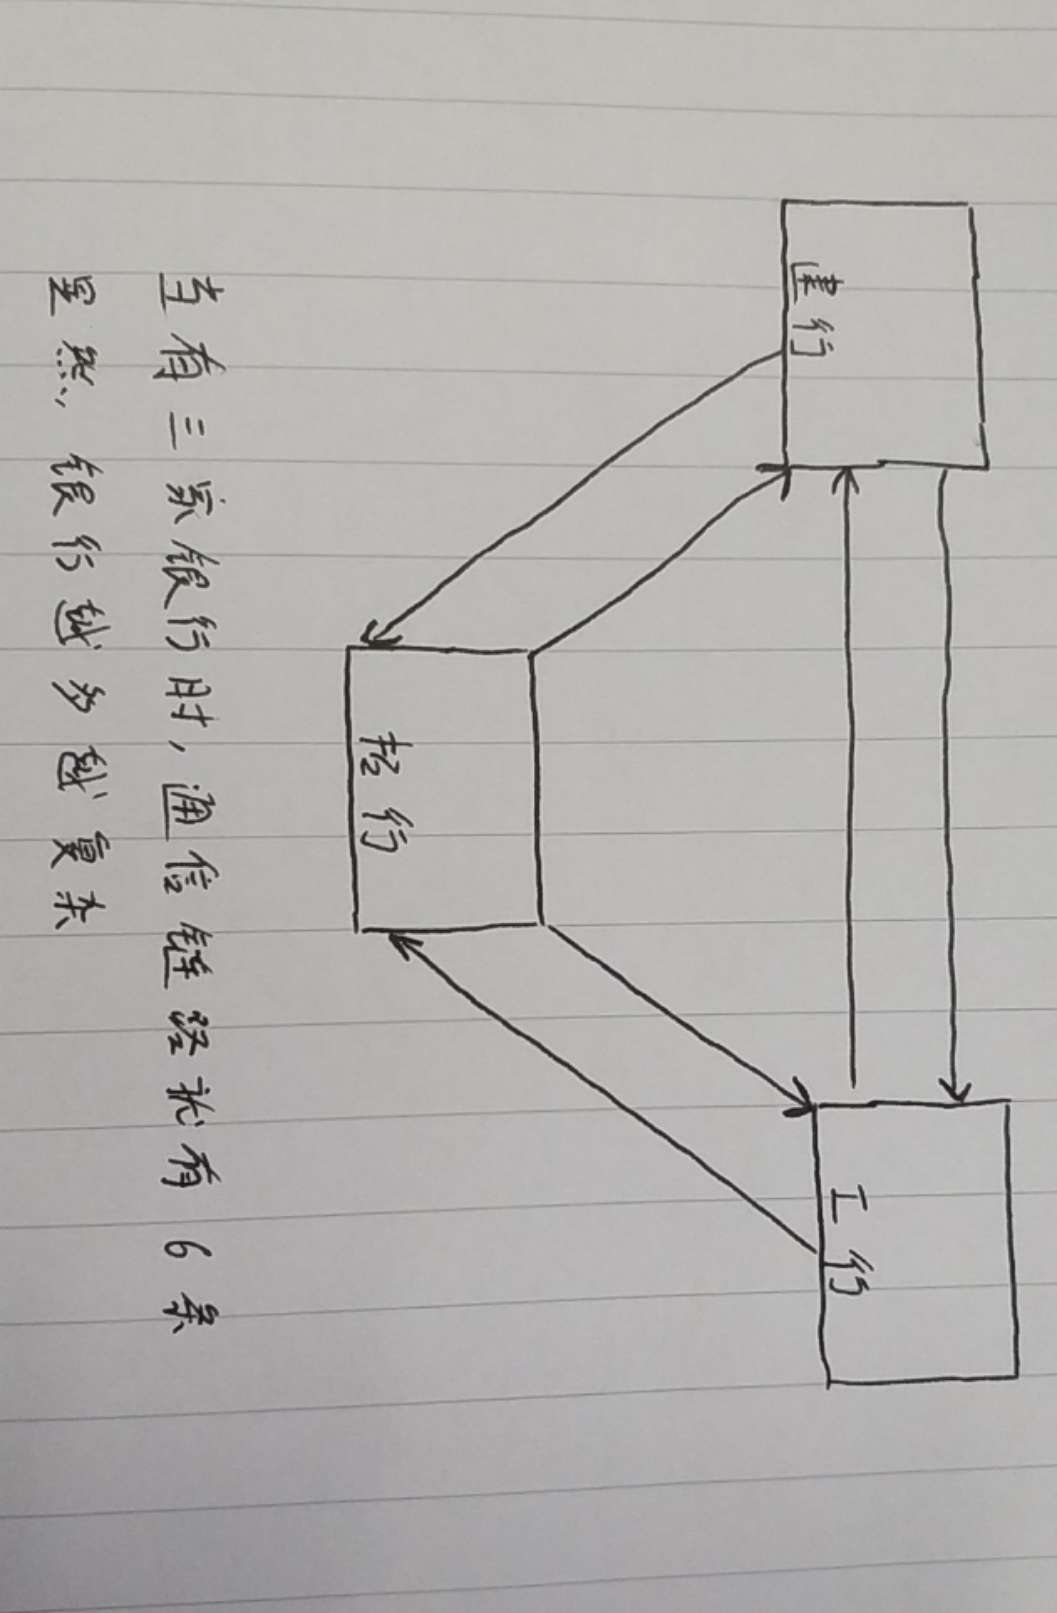 建行
工行
招行
当有三家银行时，通信链路就有6条
显然，银行越多越复杂